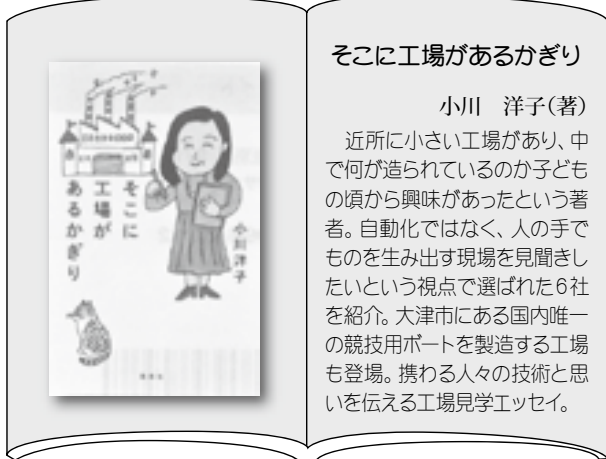 そこに
工場が
あるかぎり
小川洋子
そこに工場があるかぎり
小川　洋子(著)
　近所に小さい工場があり、中
で何が造られているのか子ども
の頃から興味があったという著
者。自動化ではなく、人の手で
ものを生み出す現場を見聞きし
たいという視点で選ばれた6社
を紹介。大津市にある国内唯一
の競技用ボートを製造する工場
も登場。携わる人々の技術と思
いを伝える工場見学エッセイ。